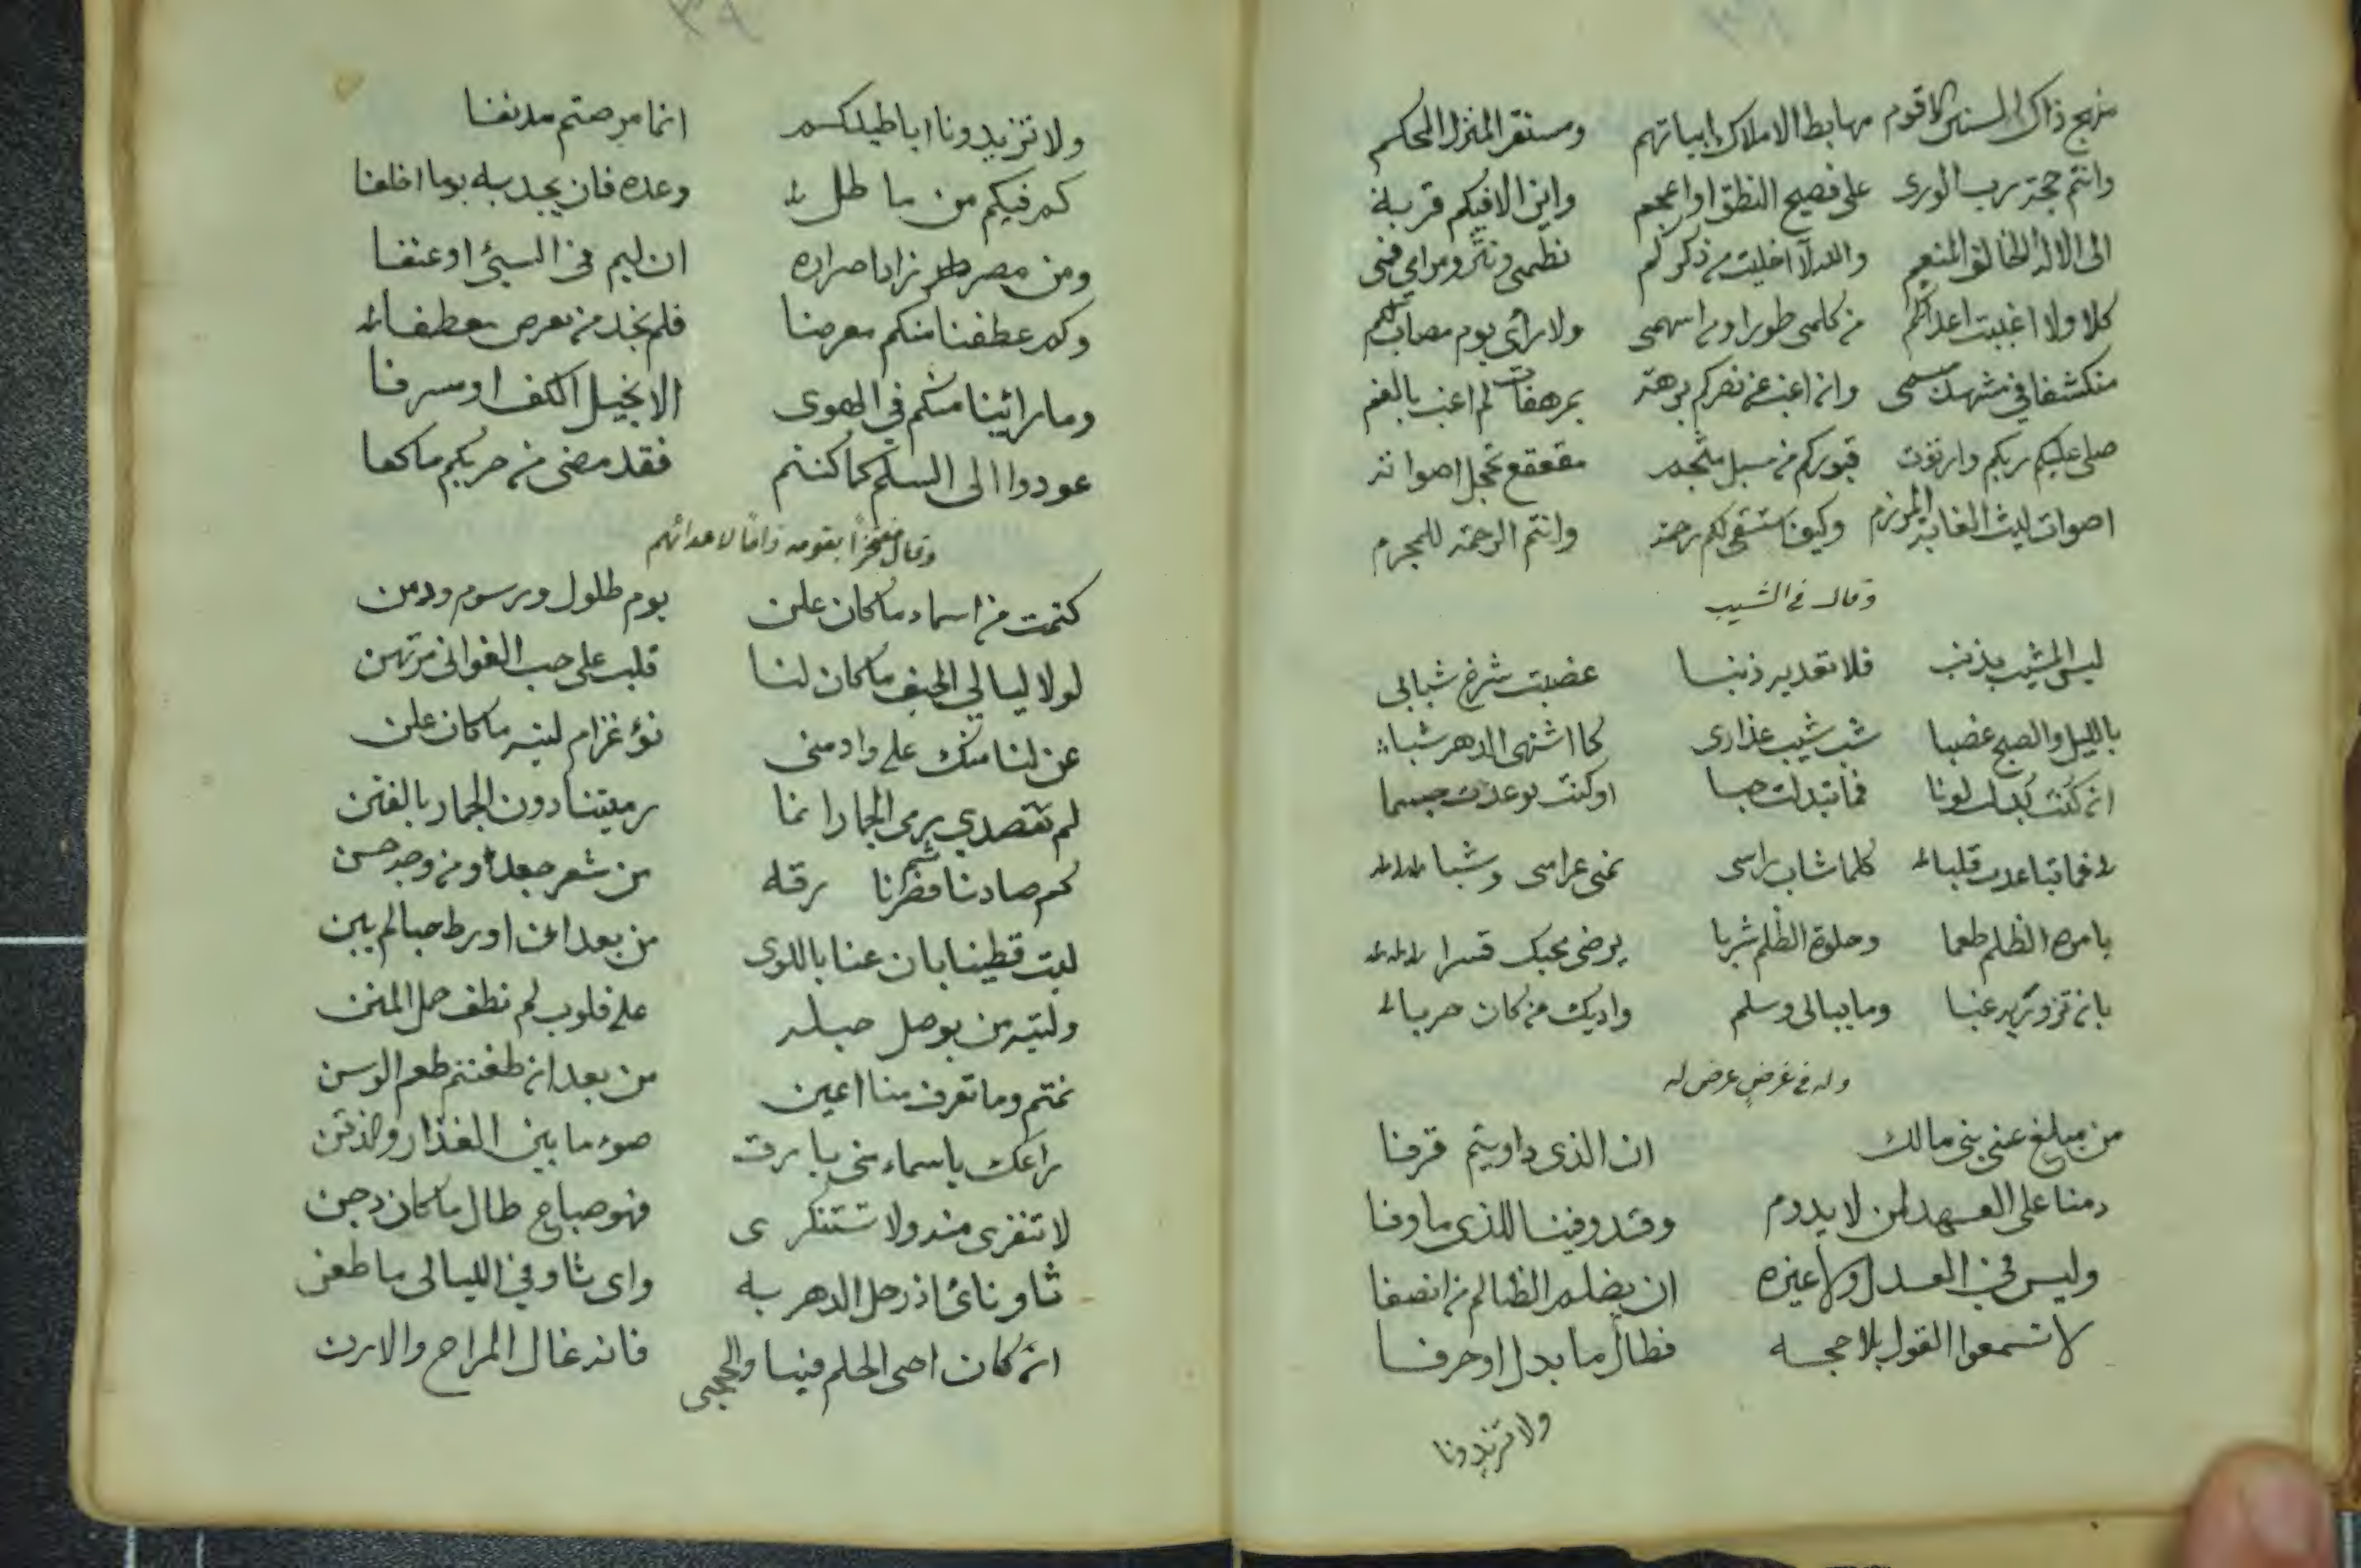 ٣٨
منهج ذاك السنن الاقوم مهابط الاملاك ابياتهم ومستقر المنزل المحكم
وانتم حجة رب الورى على فصيح النطق او اعجم واين الا فيكم قربة
الى الاله الخالق المنعم والله لا اخليت من ذكركم نظمى ونثرى ومرامى فمى
كلا ولا اغببت اعدائكم من كلمى طورا ومن اسهمى ولا رأى يوم مصاب لكم
منكشفا فى مشهد مبسمى وان اغب عن نصركم برهة بمرهفات لم اغب بالفم
صلى عليكم ربكم وارتوت قبوركم من مسبل مثجم مقعقع تخجل اصواته
اصوات ليث الغابة المرزم وكيف استسقى لكم رحمة وانتم الرحمة للمجرم
وقال فى الشيب
ليس المشيب بذنب فلا تعديه ذنبا غضبت شرخ شبابى
بالليل والصبح غضبا شب شيب عذارى كما اشتهى الدهر شبا
ان كنت بدلت لونا فما تبدلت حبا او كنت بوعدت جسما
فما تباعدت قلبا كلما شاب راسى نمى غرامى وشبا
يا مرة الظلم طعما وحلوة الظلم شربا يرضى محبك قسرا
بان تزوريه غبا وما يبالى وسلم واديك من كان حربا
وله فى غرض عرض له
من مبلغ عنى بنى مالك ان الذى داويتم قرفا
دمنا على العهد لمن لا يدوم وقد وفينا للذى ما وفا
وليس فى العدل ولا غيره ان يظلم الظالم من انصفا
لا تسمعوا القول بلا حجه فطال ما بدل او حرفا
ولا تزيدونا
٣٩
ولا تزيدونا اباطيلكم انما مرضتم مدنفا
كم فيكم من ماطل وعده فان يجد به يوما اخلفا
ومن مصر زاد اصراره ان ليم فى السيئ او عنفا
وكم عطفنا منكم معرضا فلم نجد من معرض معطفا
وما راينا منكم فى الهوى الا بخيل الكف او مسرفا
عودوا الى السلم كما كنتم فقد مضى من حربكم ما كفا
وقال مفتخرًا بقومه ذامًا لاعدائهم
كتمت من اسماء ما كان علن يوم طلول ورسوم ودمن
لولا ليالى الخيف ما كان لنا قلب على حب الغوانى مرتهن
عن لنا منك على وادمنى نوء غرام ليته ما كان عن
لم تقصدى يرمى الجمار انما رميتنا دون الجمار بالفتن
كم صادنا من شعر جعد ومن وجه حسن
ليت قطينا بان عنا باللوى من بعد ان اورط حبا لم يبن
وليته من بوصل حبله على قلوب لم نطق حمل المنن
نمتم وما تعرف منا اعين من بعد ان ظعنتم طعم الوسن
راعك يا اسماء منى بارق ضوء ما بين العذار والذقن
لا تنفرى منه ولا تستنكرى فهو صباح طال ما كان دجن
ثاو نائ اذ رحل الدهر به واى ثاو فى الليالى ما ظعن
ان كان احيى الحلم فينا والحجى فانه غال المراح والارن